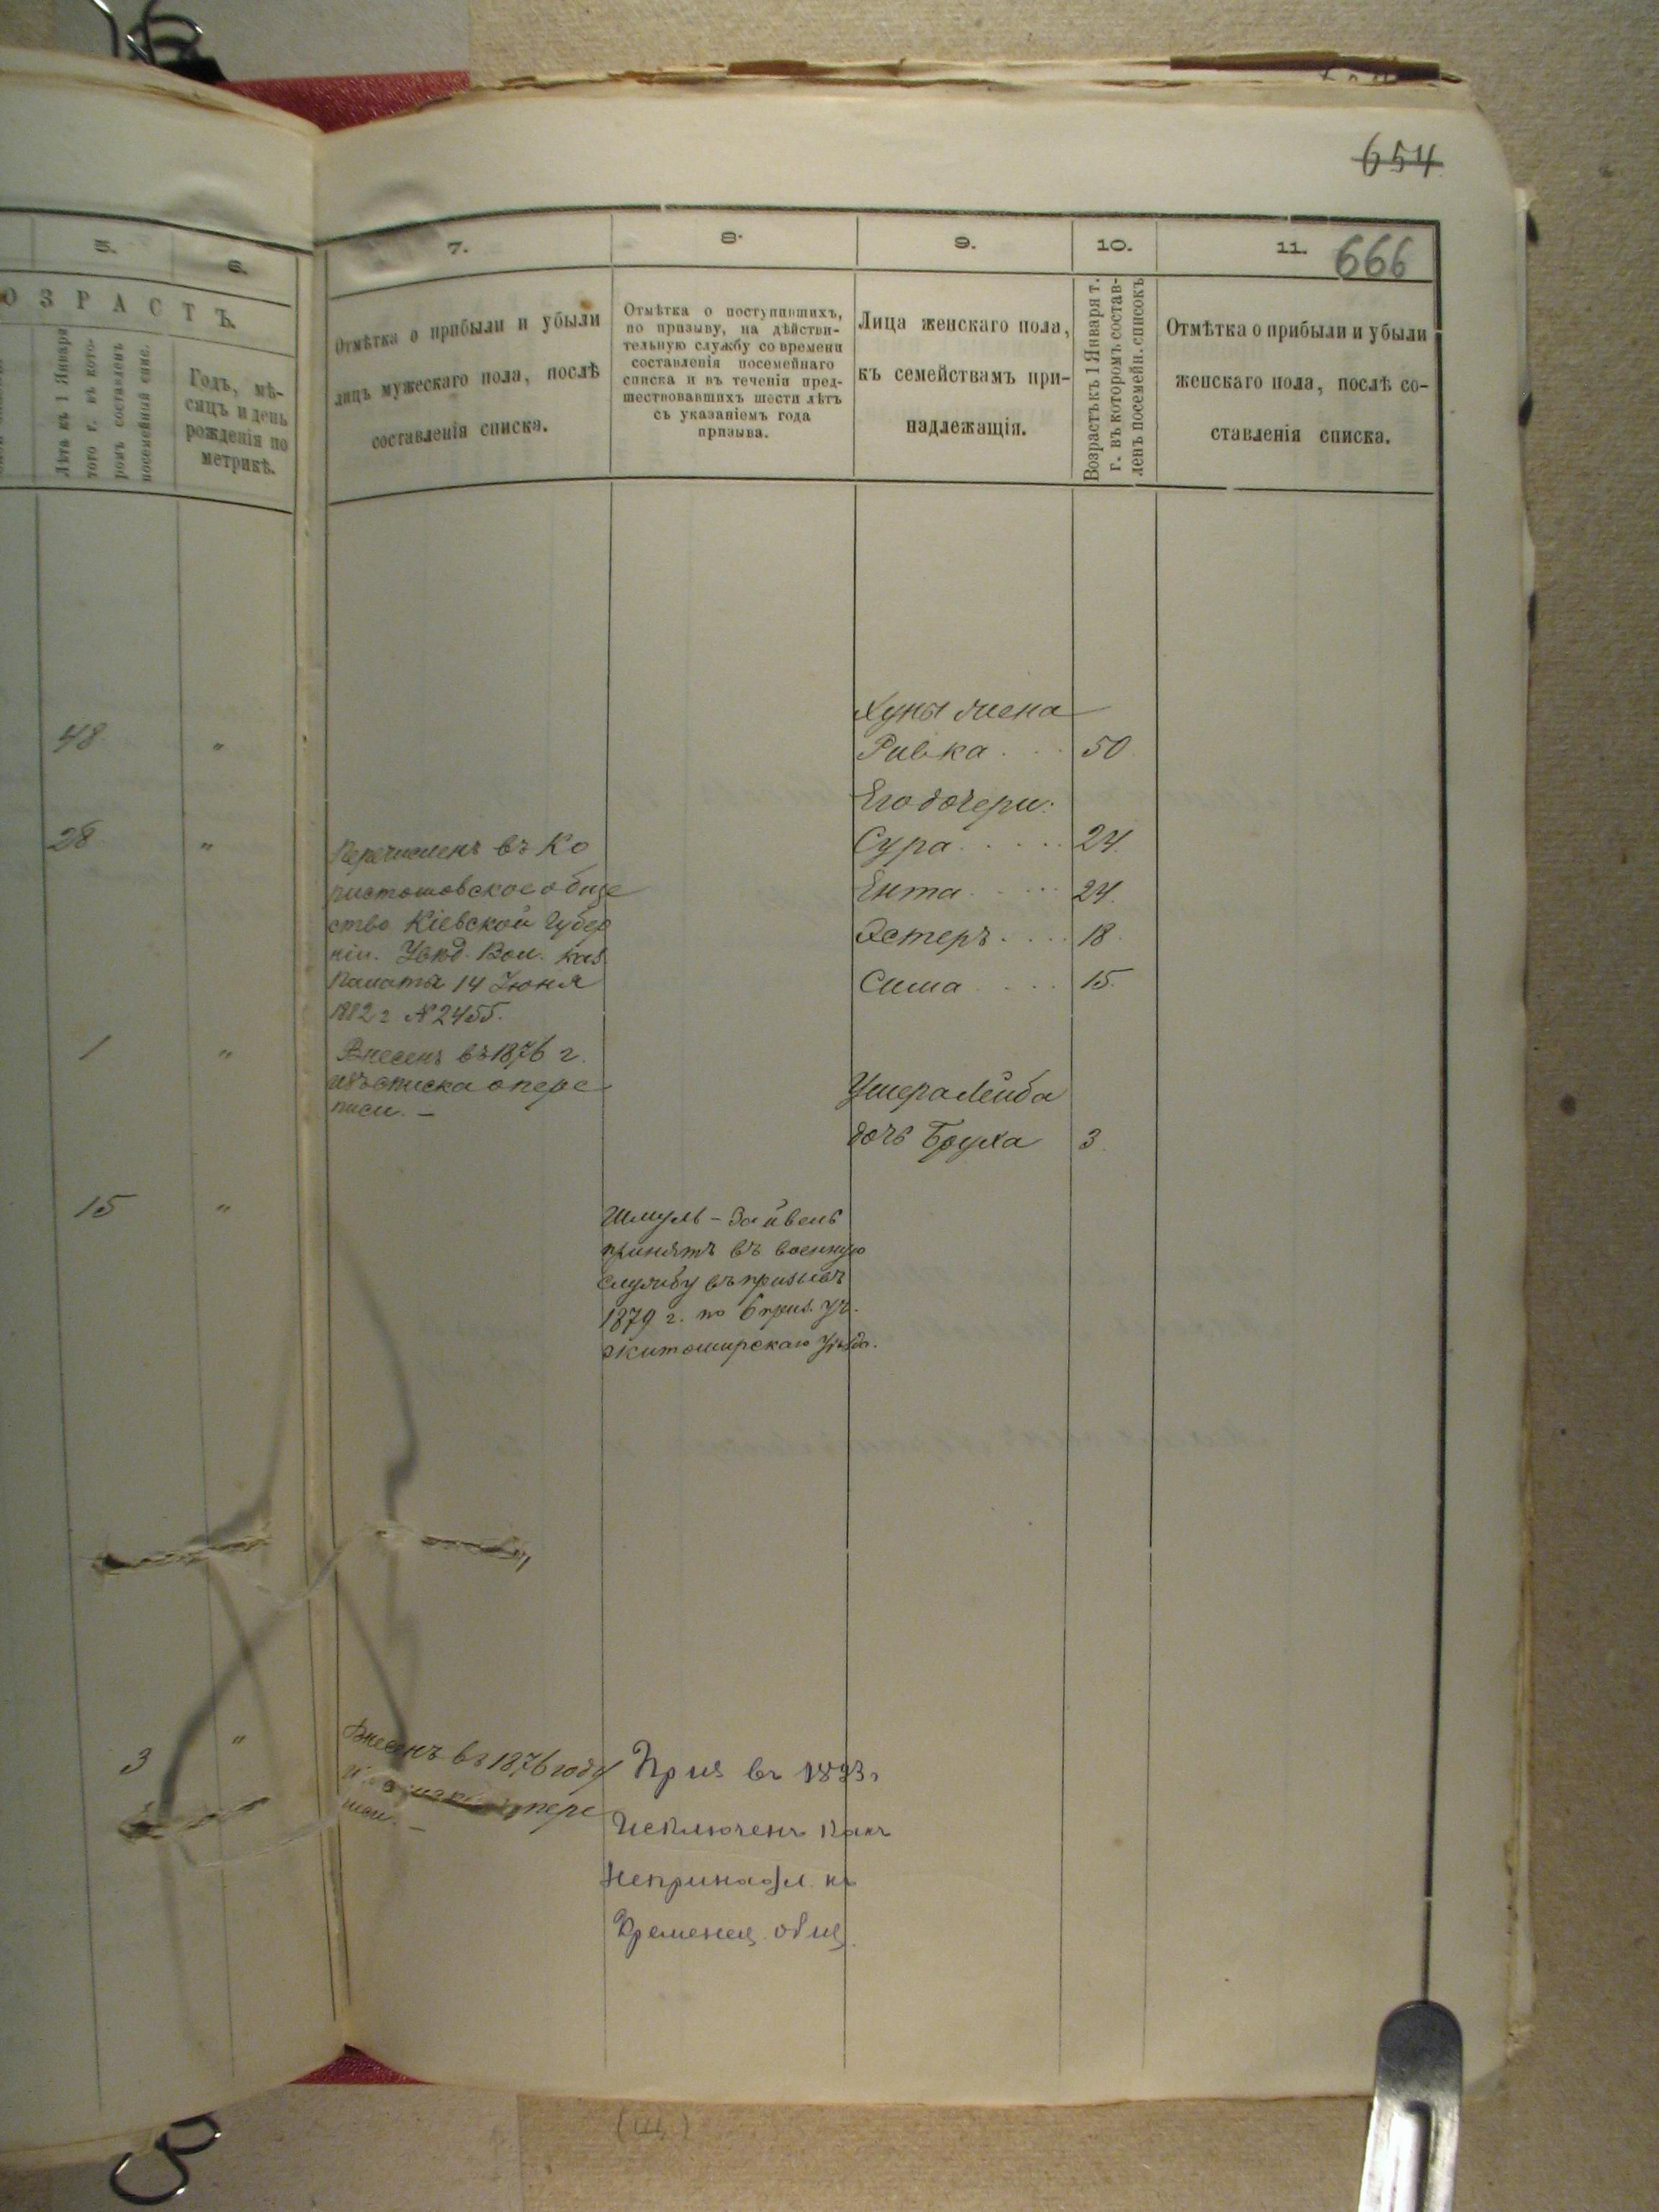 654
5.
6.
7.
8.
9.
10.
11.
666
ОЗРАСТЪ.
Лѣта къ 1 Января
того г. въ кото-
ромъ составленъ
посемейный спис.
Годъ, мѣ-
сяцъ и день
рожденія по
метрикѣ.
Отмѣтка о прибыли и убыли
лицъ мужескаго пола, послѣ
составленія списка.
Отмѣтка о поступившихъ,
по призыву, на дѣйстви-
тельную службу со времени
составленія посемейнаго
списка и въ теченіи пред-
шествовавшихъ шести лѣтъ
съ указаніемъ года
призыва.
Лица женскаго пола,
къ семействамъ при-
надлежащія.
Возрастъ къ 1 Января т.
г. въ которомъ состав-
ленъ посемейн. списокъ
Отмѣтка о прибыли и убыли
женскаго пола, послѣ со-
ставленія списка.
Хуны жена
48 "
Ривка . . . 50
Его дочери:
28 "
Сура . . . . . 24.
Ента . . . . . 24.
Эстеръ . . . . 18.
Сима . . . . 15.
Перечисленъ въ Ко
ристошовское обще
ство Кіевской Губер
ніи. Увѣд. Вол. каз
Палаты 14 Іюня
1882 г №2455.
1 "
Внесенъ въ 1876 г.
изъ списка о пере
писи. —
Ушера Лейба
дочь Бруха 3.
15 "
Шмуль-Зайвель
принятъ въ военную
службу въ призывъ
1879 г. по 6 приз. уч.
Житомирскаго Уѣзда.
3 "
Внесенъ въ 1876 году
пере
писи. —
Приз въ 1893 г
Исключенъ какъ
непринадл. къ
Кременец. общ.
(щ)